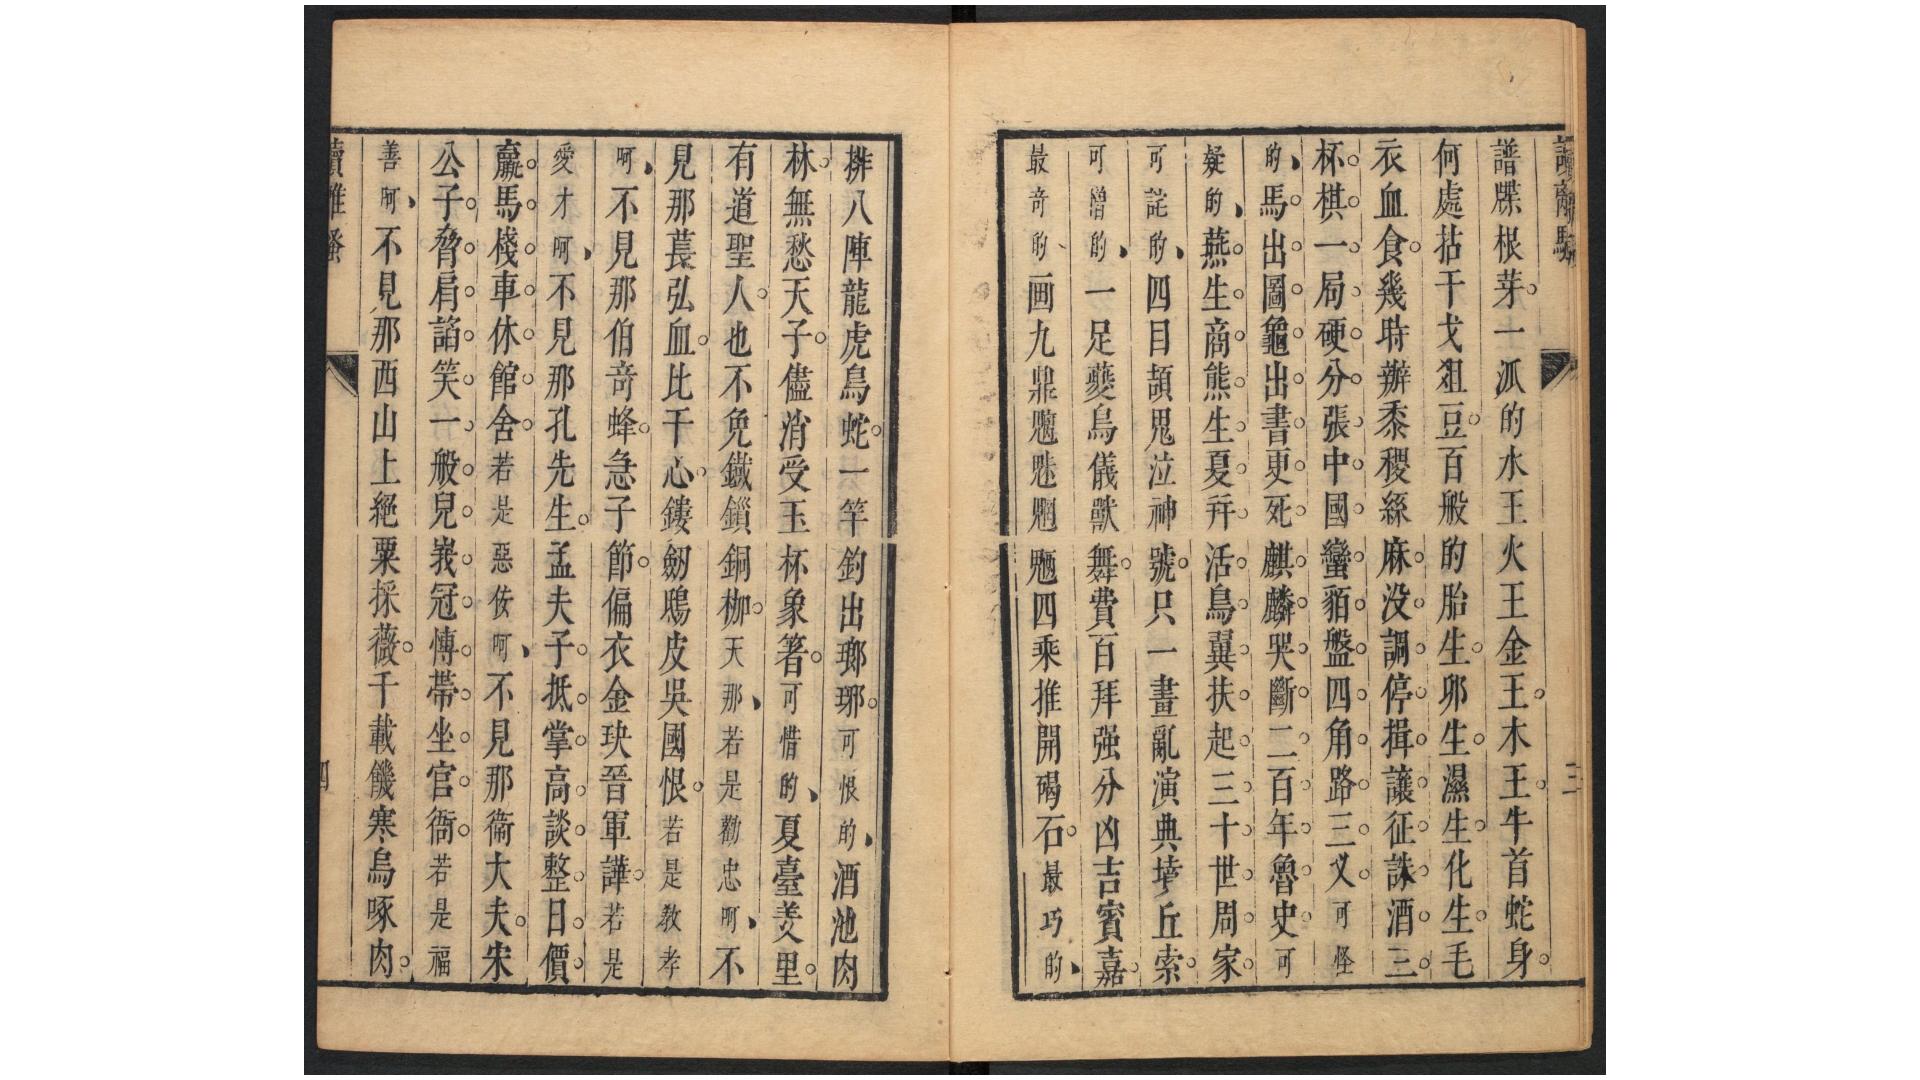 譜牒根芽一派的水王火王金王木王牛首蛇身
何處拈干戈俎豆百般的胎生卵生濕生化生毛
衣血食幾時辦黍稷絲麻没調停揖讓征誅酒三
杯棋一局硬分張中國蠻貊盤四角路三叉可怪
的馬出圖龜出書更死麒麟哭斷二百年魯史可
疑的燕生商熊生夏幷活鳥翼扶起三十世周家
可詫的四目頡鬼泣神號只一畫亂演典墳丘索
可憎的一足夔鳥儀獸舞費百拜强分凶吉賓嘉
最竒的画九鼎魑魅魍魎四乘推開碣石最巧的
排八陣龍虎鳥蛇一竿釣出瑯琊可恨的酒池肉
林無愁天子儘消受玉杯象箸可惜的夏臺羑里
有道聖人也不免鐵鎖銅枷天那若是勸忠呵不
見那萇弘血比干心鏤劒鴟皮吳國恨若是教孝
呵不見那伯竒蜂急子節偏衣金玦晉軍譁若是
愛才呵不見那孔先生孟夫子抵掌高談整日價
羸馬棧車休館舍若是惡侫呵不見那衞大夫宋
公子脅肩諂笑一般兒峩冠愽帶坐官衙若是福
善呵不見那西山上絕粟採薇千載饑寒烏啄肉
讀離騷
四